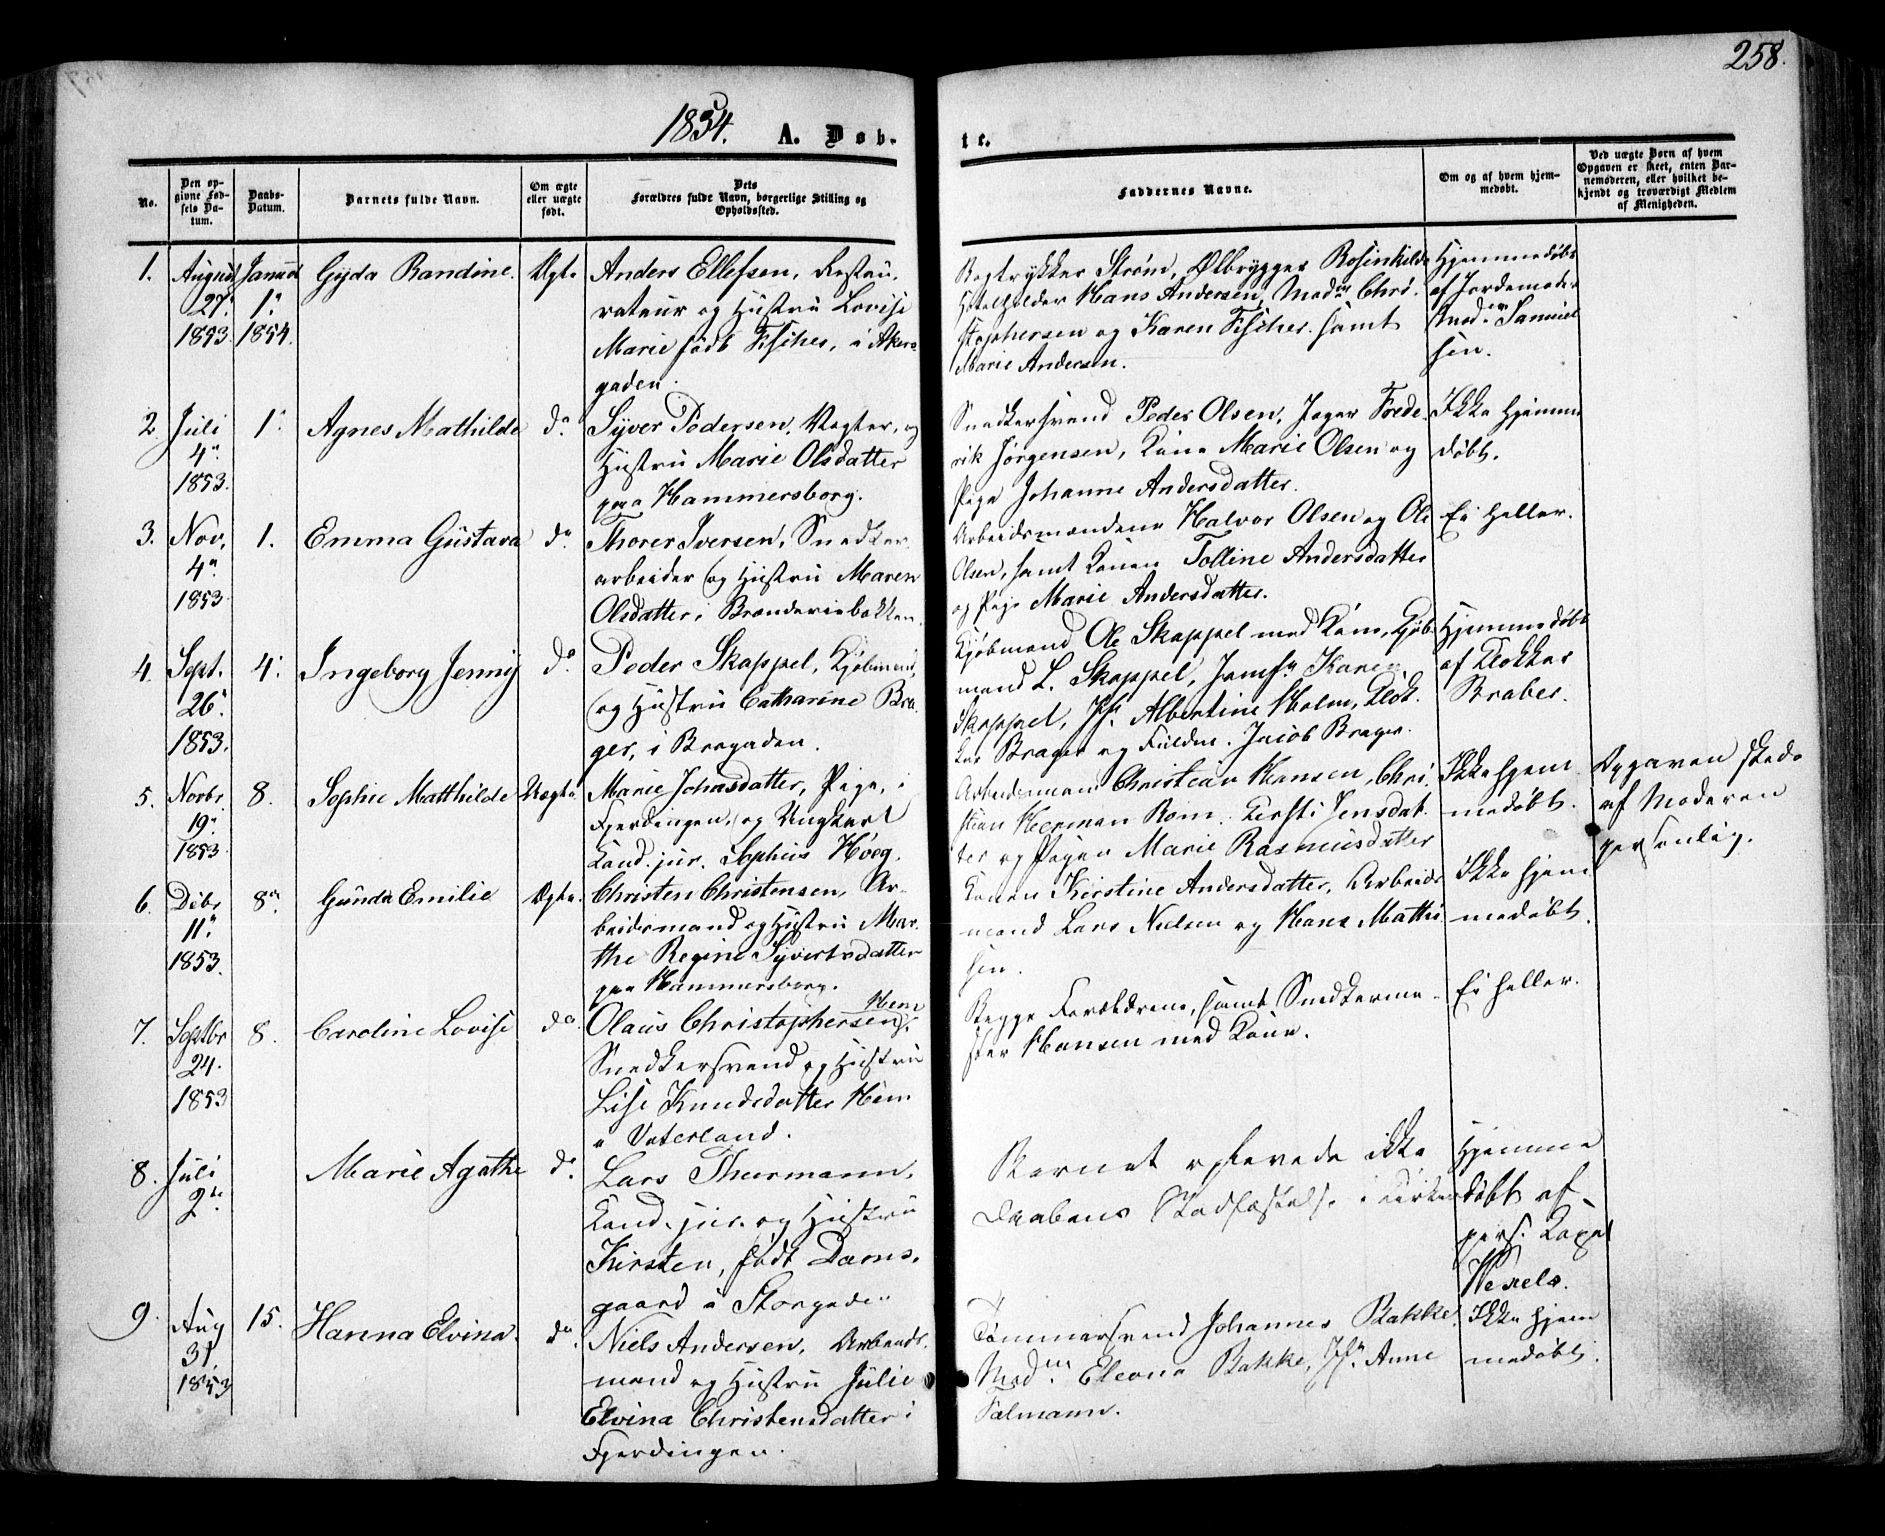 258.
1854. A. Døb-
te.
No.
Den op-
givne Fød-
sels Da-
tum.
Daabs-
Datum.
Barnets fulde Navn.
Om ægte
eller uægte
født.
Dets
Forældres fulde Navn, borgerlige Stilling og
Opholdssted.
Faddernes Navne.
Om og af hvem hjem-
medøbt.
Ved uægte Børn af hvem
Opgaven er skeet, enten Bar-
nemoderen, eller hvilket be-
kjendt og troværdigt Medlem
af Menigheden.
1.
August
27.
1853
Januar
1.
1854.
Gyda Randine.
Ægte
Anders Ellefsen, Restau-
rateur og Hustru Lovise
Marie født Fischer, i Akers-
gaden.
Bogtrykker Strøm, Ølbrygger Rosinkilde
Hotelholder Hans Andersen, Madm Chri-
stophersen og Karen Fischer samt
Marie Andersen.
Hjemmedøbt
af Jordemoder
Madm Samuel
sen.
2.
Juli
4.
1853.
1.
Agnes Mathilde
do
Syver Pedersen, Vægter, og
Hustru Marie Olsdatter
paa Hammersborg.
Snedkersvend Peder Olsen, Jæger Frede-
rik Jørgensen, Kone Marie Olsen og
Pige Johanne Andersdatter.
Ikke hjemme
døbt.
3.
Nov.
4.
1853
1.
Emma Gustava
do
Thorer Iversen, Snedker-
arbeider og Hustru Maren
Olsdatter i Brænderiebakken.
Arbeidsmændene Halvor Olsen og Ole
Olsen, samt Konen Tolline Andersdatter
og Pige Marie Andersdatter.
Ei heller.
4.
Sept.
26.
1853.
4.
Ingeborg Jenny
do
Peder Skappel, Kjøbmand,
og Hustru Catharine Bra-
ger, i Brogaden.
Kjøbmand Ole Skappel med Kone, Kjøb-
mand L. Skappel, Jomfr Karen
Skappel, Jfr. Albertine Holm, Klok-
ker Brager og Fuldm. Jacob Brager.
Hjemmedøbt
af Klokker
Braber.
5.
Novbr
19.
1853
8.
Sophie Matthilde
Uægte
Marie Johnsdatter, Pige, i
Fjerdingen, og Ungkarl
Cand. jur. Sophus Höeg.
Arbeidsmann Christian Hansen, Chri-
stian Herman Rom, Kersti Jensdat-
ter og Pigen Marie Rasmusdatter
Ikke hjem
medøbt.
Opgaven skede
af Moderen
personlig.
6.
Dcbr
11.
1853.
8.
Gunda Emilie
Ægte.
Christen Christensen, Ar-
beidsmand og Hustru Mar-
the Regine Syvertsdatter
paa Hammersborg.
Konen Kirstine Andersdatter, Arbeids
mand Lars Nielsen og Hans Mathi
sen.
Ikke hjem
medøbt.
7.
Septbr
24.
1853
8.
Caroline Lovise
do.
Olaus Christophersen Hem
Snedkersvend og Hustru
Lise Knudsdatter Hem
i Vaterland.
Begge Forældrene, samt Snedkerme-
ster Hansen med Kone.
Ei heller.
8.
Juli
2.
Marie Agathe
do
Lars Thurmann,
Cand. jur. og Hustru
Kirsten, født Dams-
gaard i Storgaden
Barnet oplevede ikke
Daabens Stadfæstelse i Kirken
Hjemme
døbt af
pers. Kapel
Wexels.
9.
Aug
31
1853
15.
Hanna Elvina.
do.
Niels Andersen, Arbeids-
mand og Hustru Julie
Elvina Christensdatter i
Fjerdingen.
Tømmersvend Johannes Bakke,
Madm. Eleona Bakke, Jfr. Anne
Talmann.
Ikke hjem
medøbt.